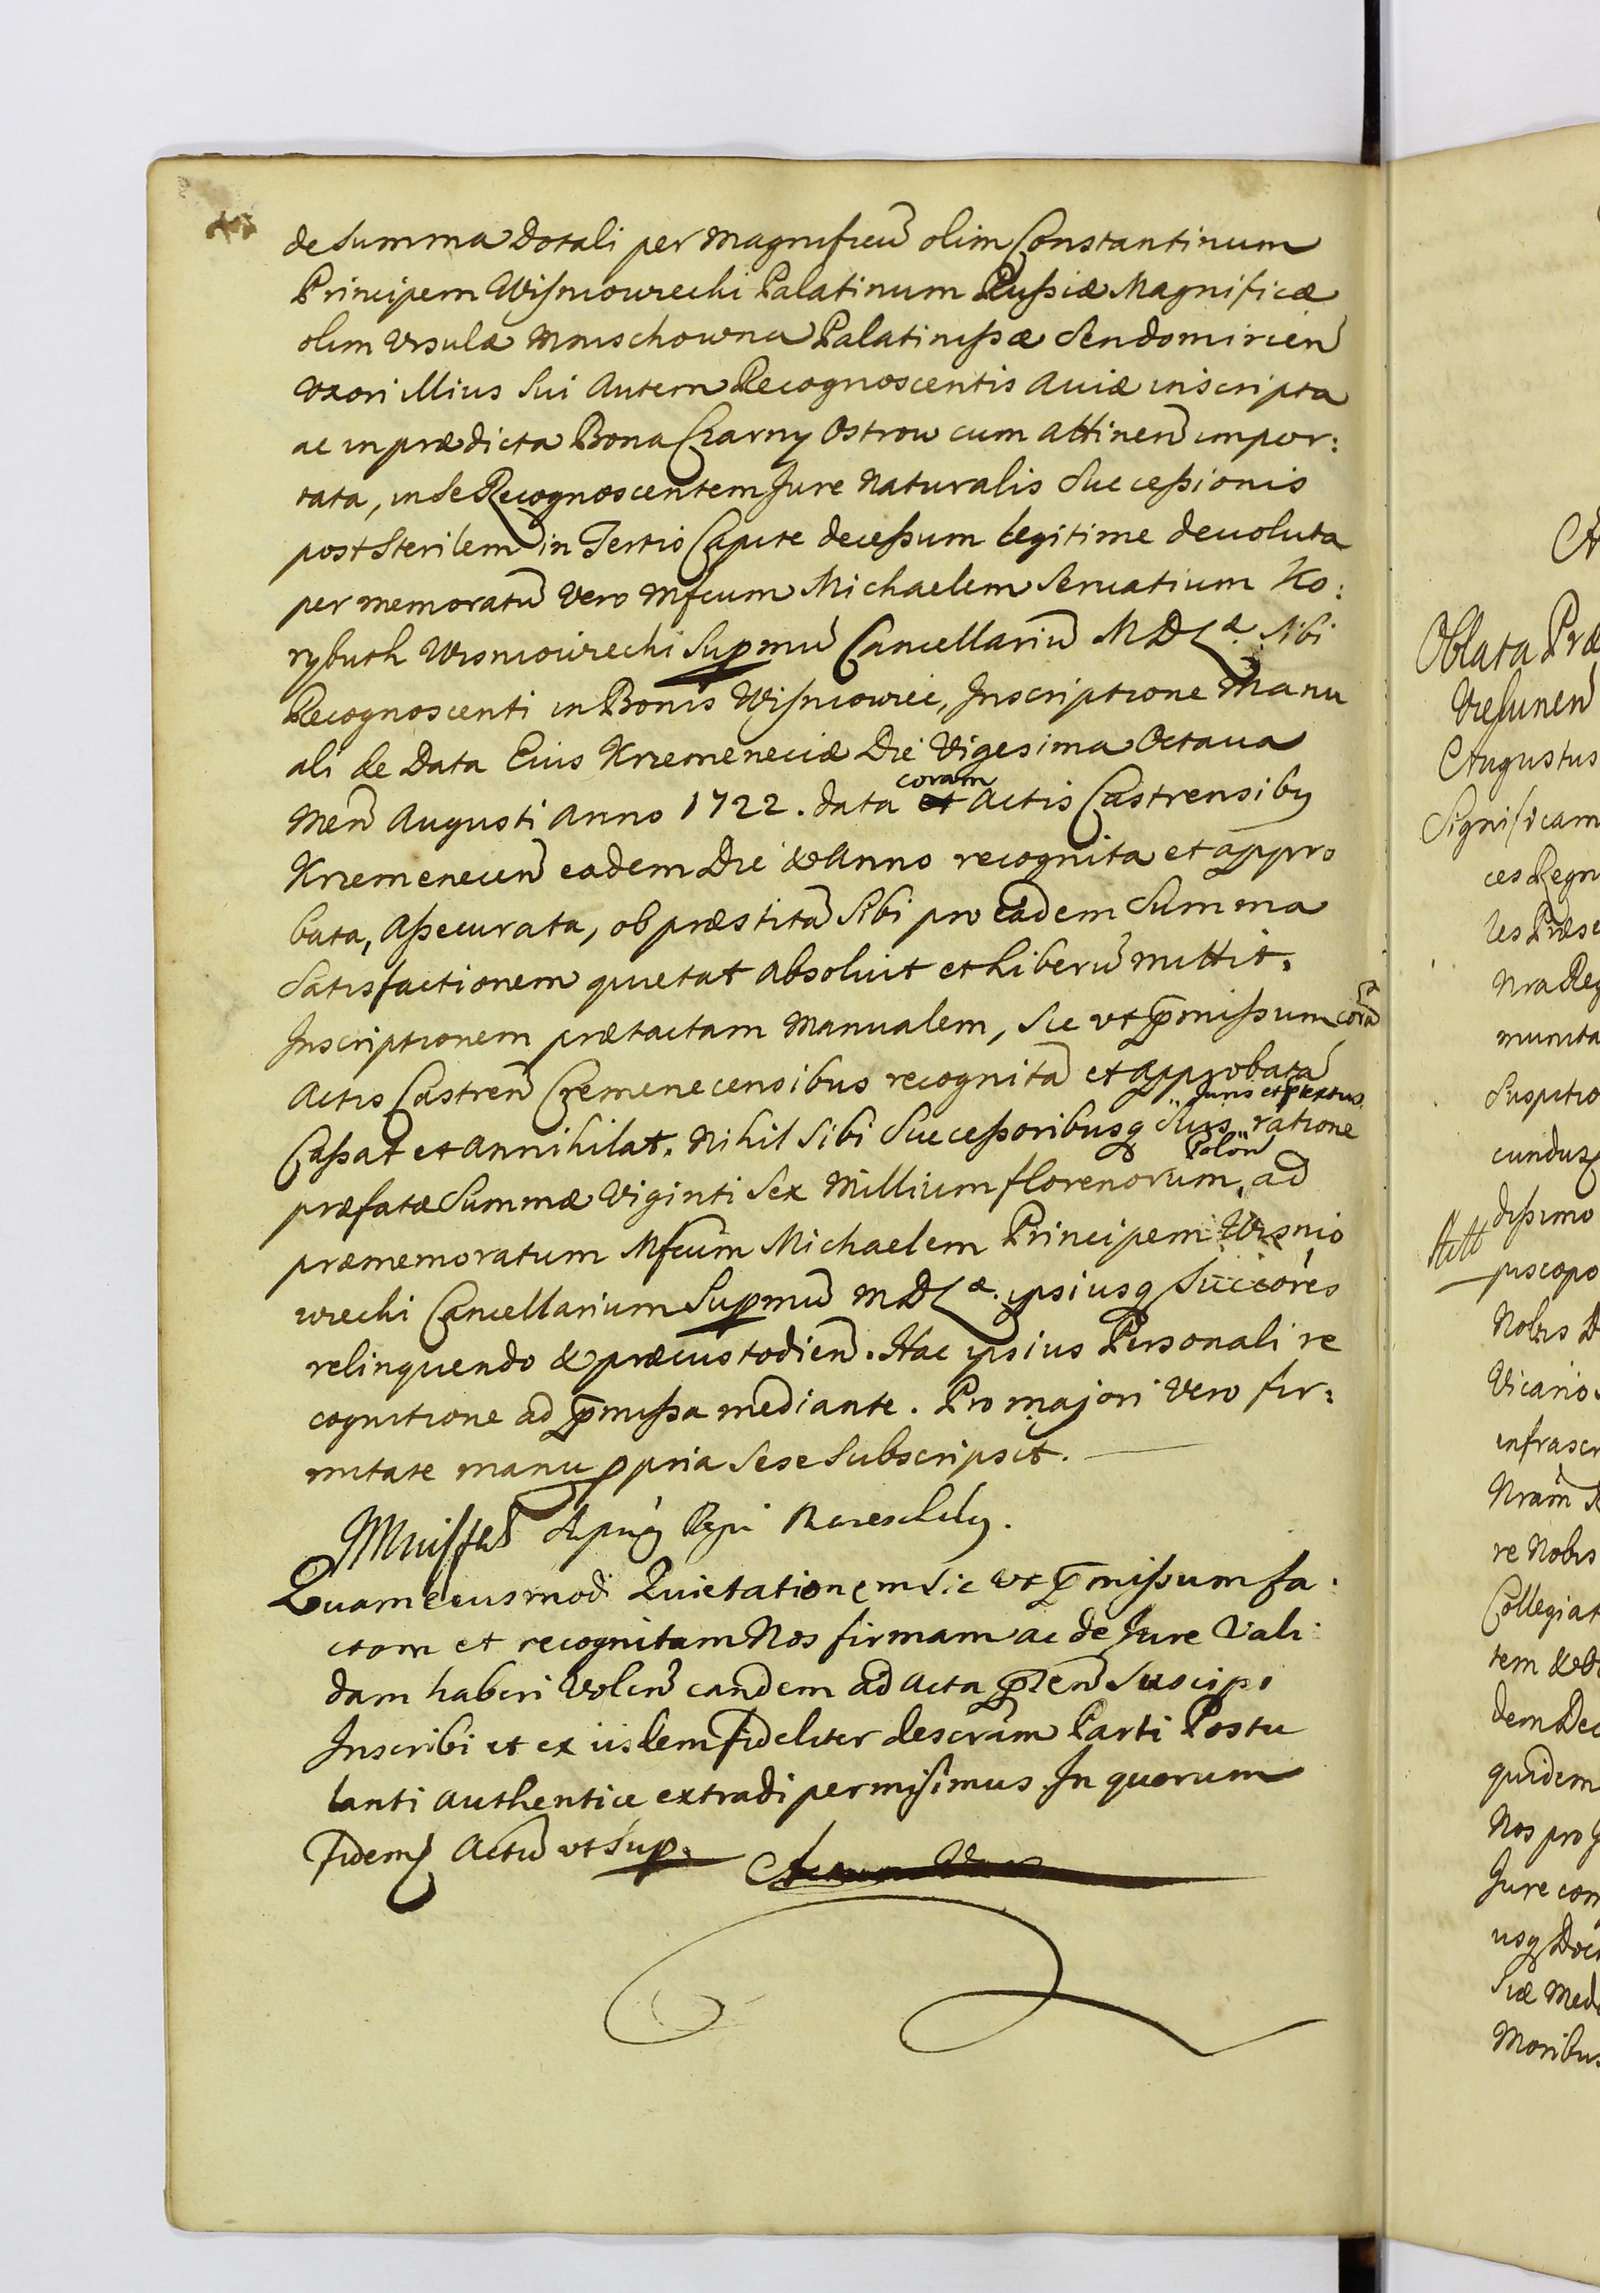 de Summa Dotali per Magnificũ olim Constantinum
Principem Wiſniowiecki Palatinum Rußiæ Magnificæ
olim Ursulæ Mnischowna Palatinißæ Sendomirien̄
Uxori illius Sui Autem Recognoscentis Aviæ inscripta
ac in prædicta Bona Czarny Ostrow cum attinen̄ impor:
tata, in se Recognoscentem Jure Naturalis Succeßionis
post Sterilem in Tertio Capite deceßum legitime devoluta
per memoratũ Vero Mfcum Michaelem Servatium Ko:
rybuth Wisniowiecki Supmũ Cancellariũ M D L æ. Sibi
Recognoscenti in Bonis Wiſniowiec, Inscriptione Manu
ali de Data Eius Krzemeneciæ Die Vigesima Octava
Men̄ Augusti Anno 1722. data coram Actis Castrensibq
Krzemenecen̄ eadem Die & Anno recognita et appro
bata, Aßecurata, ob præstitã Sibi pro eadem Summa
Satisfactionem quietat absoluit et liberũ mittit.
Inscriptionem prætactam Manualem, Sic ut p̄mißum corã
Actis Castren̄ Cremenecensibus recognitã et approbatã
Caßat et annihilat. Nihil Sibi Succeßoribusq Suis Juris et ptextus ratione
præfatæ Summæ Viginti Sex Millium florenorum Polon̄ ad
præmemoratum Mfcum Michaelem Principem Wisnio
wiecki Cancellarium Supmũ M D L æ. ipsiusq Succores
relinquendo & præcustodien̄. Hac ipsius Personali re
cognitione ad p̄mißa mediante. Pro majori Vero fir:
mitate manu ppria Sese Subscripsit.
Quam eiusmodi Quietationem Sic ut p̄mißum fa:
ctam et recognitam Nos firmam ac de Jure Vali
dam haberi Volen̄ eandem ad Acta p̄sen̄ Suscipi
Inscribi et ex iisdem fideliter descrũm Parti Postu
lanti authentice extradi permiſimus. In quorum
fidem Actũ ut Sup.
Oblata Præ
Augustus
Significam
ces Regn
Nra Reg
munita
Suspitio
dißimo
piscopo
Nobis D
Vicario
infrascr
re Nobis
Collegiat
dem Dec
quidem
Nos pro
Jure com
Moribus